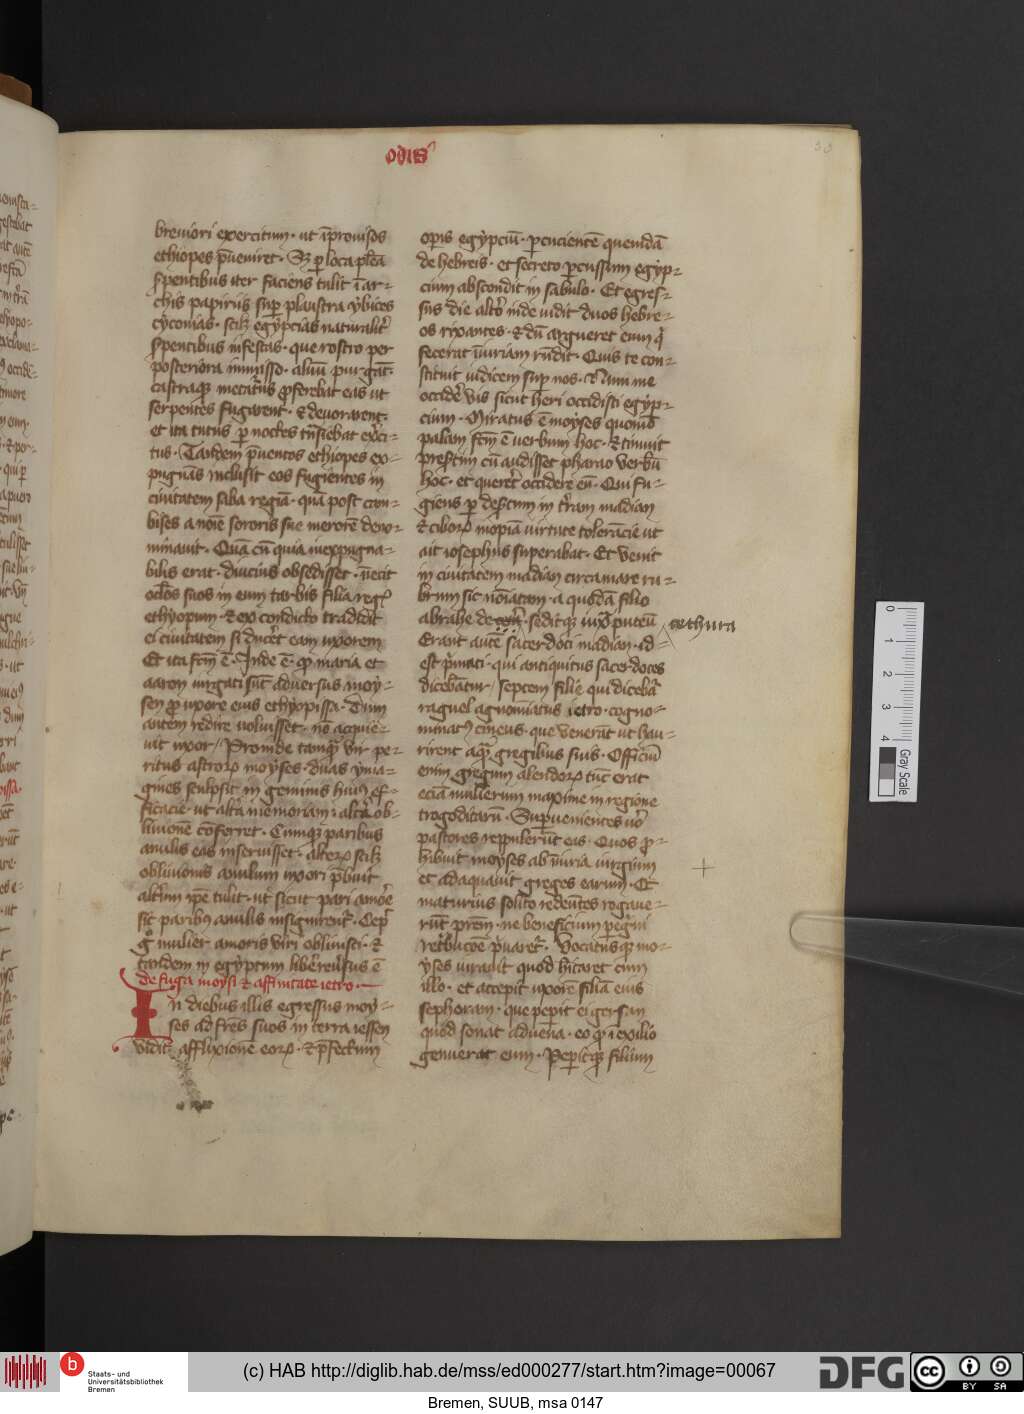 odis
33
breuiori exercitum · ut īprouisos
ethiopes p̄ueniret · Sꝫ ꝑ loca plēa
s̓pentibus iter faciens tulit ī ar-
chis papiriis suꝑ plaustra ybices
cyconias · scilꝫ egypcias naturalit̓
s̓pentibus infestas · que rostro per
posteriora inmisso · aluū purgāt ·
castraqꝫ metatur̓ ꝓferebat eas ut
serpentes fugarent · ⁊ deuorarent ·
et ita tutus ꝑ noctes tn̄siebat ex̓ci-
tus · Tandem p̄uentos ethiopes ex-
pugnās inclusit eos fugientes in
ciuitatem saba regiā · quā post cam-
bises a noīe sororis sue meroē deno-
minauit · Quā cū quia inexpugna-
bilis erat · diucius obsedisset · iniecit
oculos suos in eum tarbis filia reg̓
ethyopum · ⁊ ex condicto tradidit
ei ciuitatem si ducet̓ eam uxorem
Et ita fcm̄ ē · Inde ē · ꝙ maria et
aaron iurgati sūt aduersus moy-
sen ꝓ uxore eius ethyopissa · dum
autem redire uoluisset · nō acquie-
uit uxor / Proinde tamqꝫ vir pe-
ritus astroꝝ moyses · duas yma-
gines sculpsit in gemmis huiꝰ ef-
ficacie · ut alta̓ memoriam · alta̓ ob-
liuionē cōferret · Cumqꝫ paribus
anulis eas inseruisset · alteꝝ scilꝫ
obliuionis anulum uxori p̄buit
alt̓um ip̄e tulit · ut sicut pari amōe
sic paribꝰ anulis insignirent̓ · Cepit
g̊ mulier amoris viri obliuisci · ⁊
tandem in egyptum libe̓ reu̓sus ē
de fuga moysi ⁊ affinitate ietro ·
In diebus illis egressus moy-
ses ad fr̄es suos in terra iessen
vidit afflixionē eoꝝ · ⁊ p̄fectum
opis egypciū · ꝑcucientē quendā
de hebreis · et secreto ꝑcussum egyp-
cium abscondit in sabulo · Et egres-
sus die alt̓o inde uidit duos hebre-
os rixantes · ⁊ dū argueret eum q̇
fecerat īiuriam rn̄dit · Quis te con-
stituit iudicem suꝑ nos · Num me
occide̓ vis sicut heri occidisti egyp-
cium · Miratus ē moyses quomō
palam fcm̄ ē uerbum hoc · ⁊ timuit
presertim cū audisset pharao verbū
hoc · et queret̓ occidere eū · Qui fu-
giens ꝑ desertum in t̓ram madian
⁊ ciboꝝ inopiā virtute tolerācie ut
ait iosephus superabat · Et venit
in ciuitatem madian circa mare ru-
brum sic noīatam · a quodā filio
abrahe de · sedit qꝫ iux̄ puteū
cethura
Erant autē sacerdoti madian · id-
est p̓mati · qui antiquitus sacerdotes
dicebātur / septem filie qui dicebat̓
raguel agnominatus ietro · cogno-
minatꝰ cineus · que venerāt ut hau-
rirent aquā gregibus suis · Officiū
enim gregum alendoꝝ tūc erat
eciā mulierum maxime in regione
trogoditarū · Superuenientes uo̓
pastores reppulerūt eas · Quos ꝓ-
hibuit moyses ab īiuria uirginum
et adaquauit greges earum · Et
maturius solito redeūtes rogaue-
rūt prem̄ · ne beneficium pegrini
ret̓bucōe p̓uaret̓ · Vocatusqꝫ mo-
yses iurauit quod hitaret cum
illo · et accepit uxorē filiā eius
sephoram · que pepit ei gersan
quod sonat aduena · eo ꝙ ī exilio
genuerat eum · Pepitqꝫ filium
0
1
2
3
4
Gray Scale
Staats- und
Universitätsbibliothek
Bremen
(c) HAB http://diglib.hab.de/mss/ed000277/start.htm?image=00067
DFG
cc
BY SA
Bremen, SUUB, msa 0147